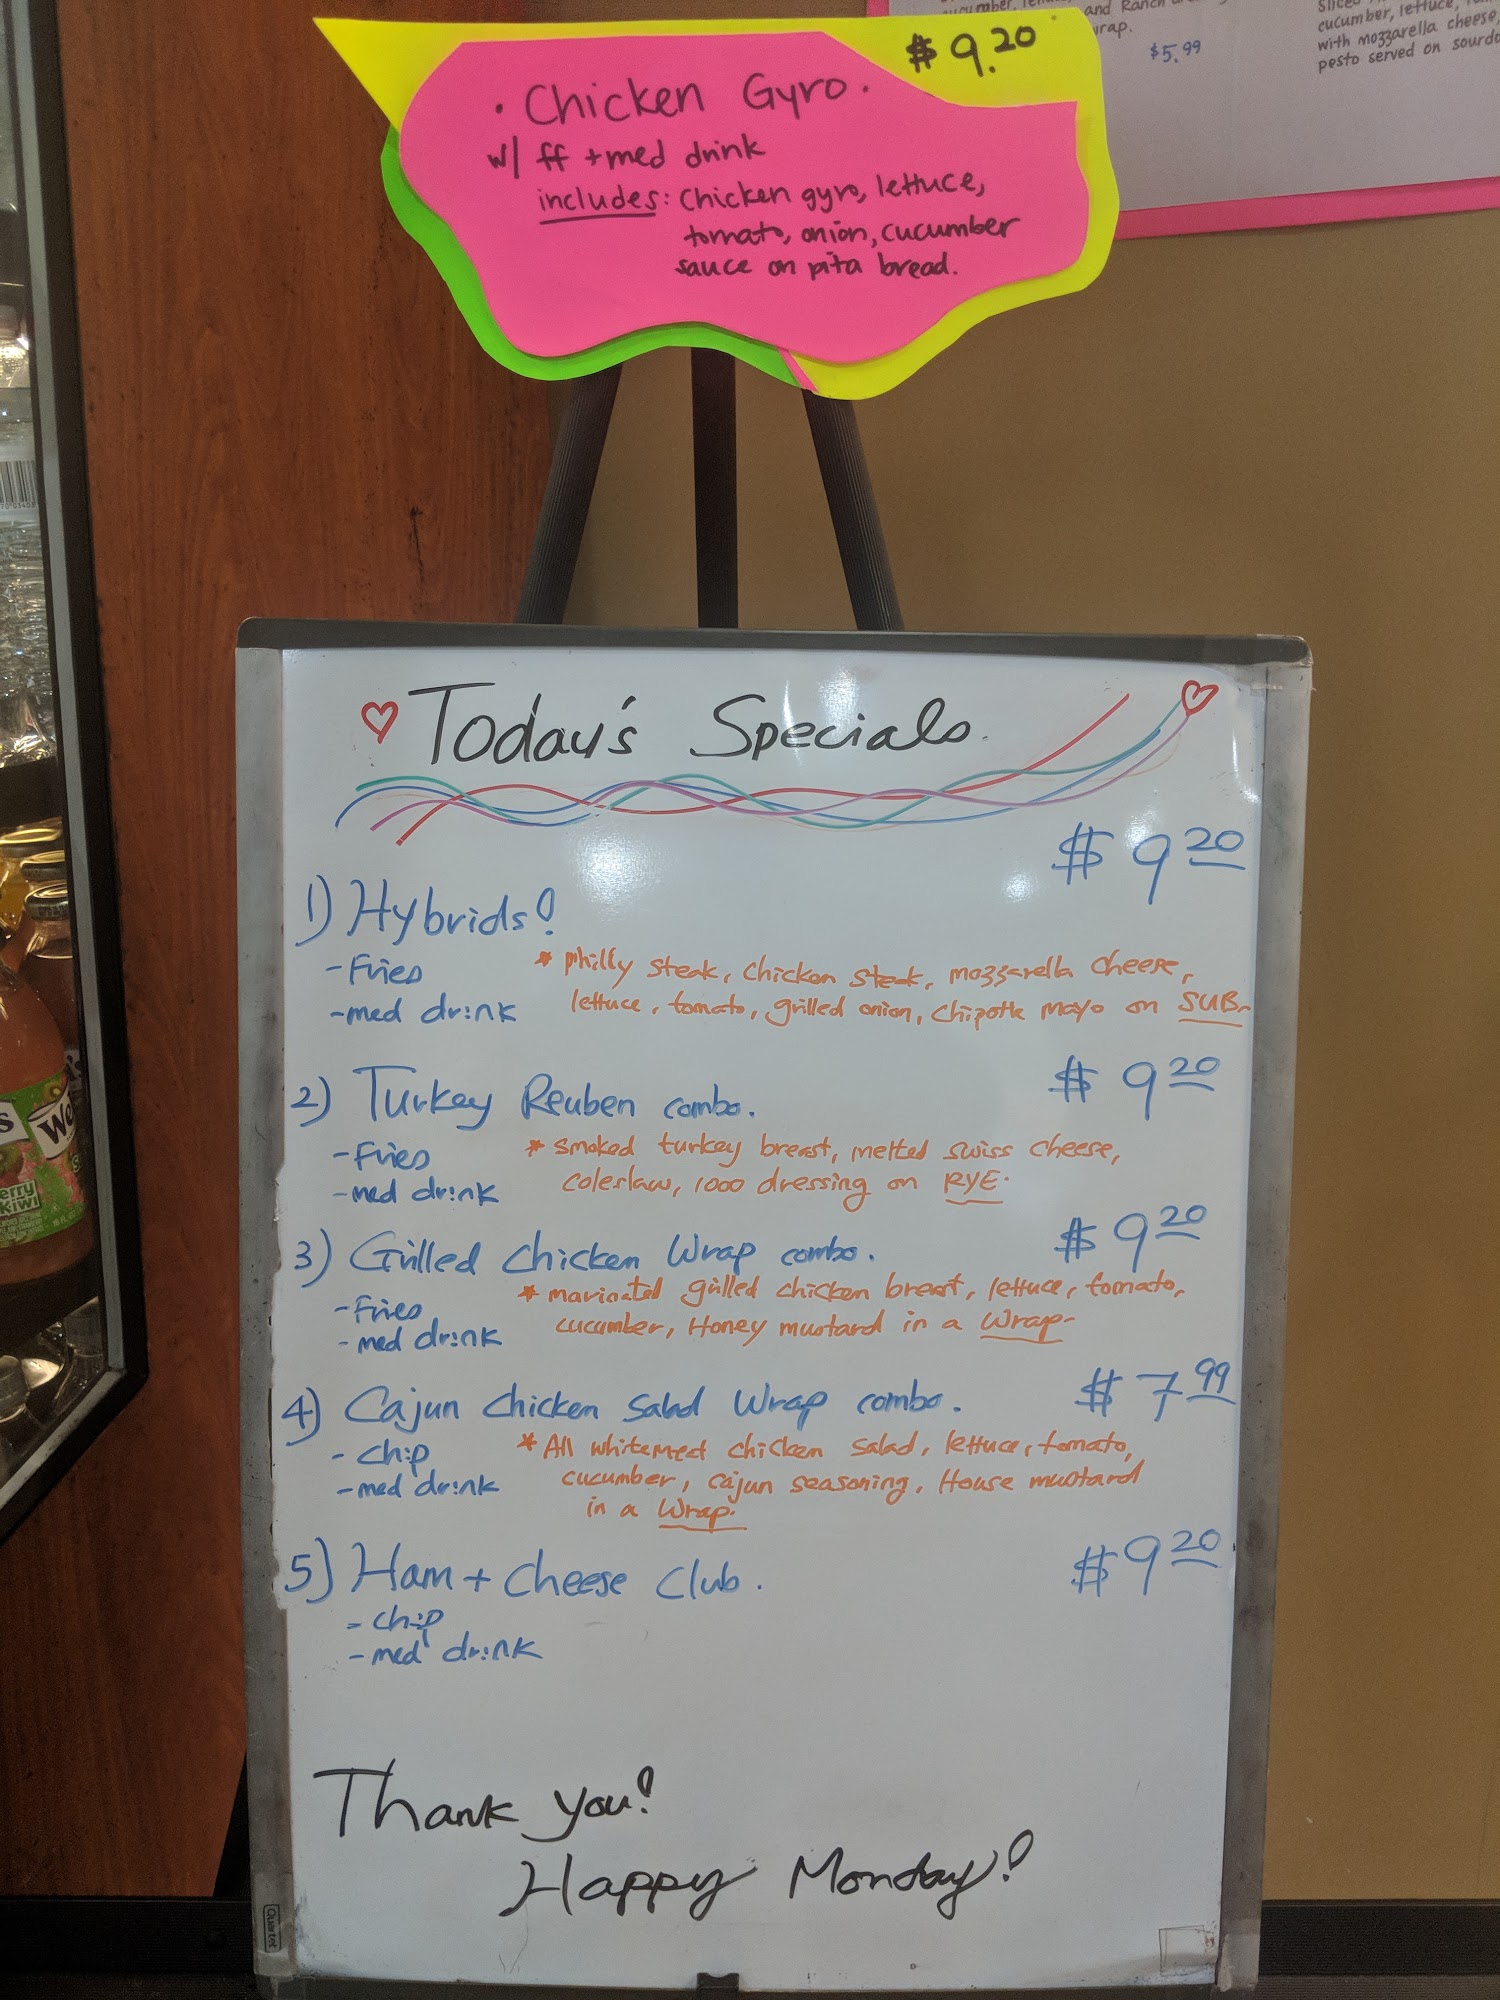 and Ranch
cucumber, lettuce,
$5.99
with mozzarella cheese,
pesto served on sourdo
$9.20
· Chicken Gyro ·
w/ ff + med drink
includes: Chicken gyro, lettuce,
tomato, onion, cucumber
sauce on pita bread.
Today's Specials
$ 9 20
1) Hybrids!
- Fries
- med drink
* philly steak, chicken steak, mozzarella cheese,
lettuce, tomato, grilled onion, chipotle mayo on SUB.
2) Turkey Reuben combo.
$ 9 20
- Fries
- med drink
* smoked turkey breast, melted swiss cheese,
coleslaw, 1000 dressing on RYE.
3) Grilled Chicken Wrap combo.
$ 9 20
- Fries
- med drink
* marinated grilled chicken breast, lettuce, tomato,
cucumber, Honey mustard in a Wrap.
4) Cajun Chicken Salad Wrap combo.
$ 7 99
- chip
- med drink
* All whitemeat chicken salad, lettuce, tomato,
cucumber, cajun seasoning, House mustard
in a Wrap.
5) Ham + Cheese Club.
$ 9 20
- chip
- med drink
Thank you!
Happy Monday!
Quartet
We
KiWi